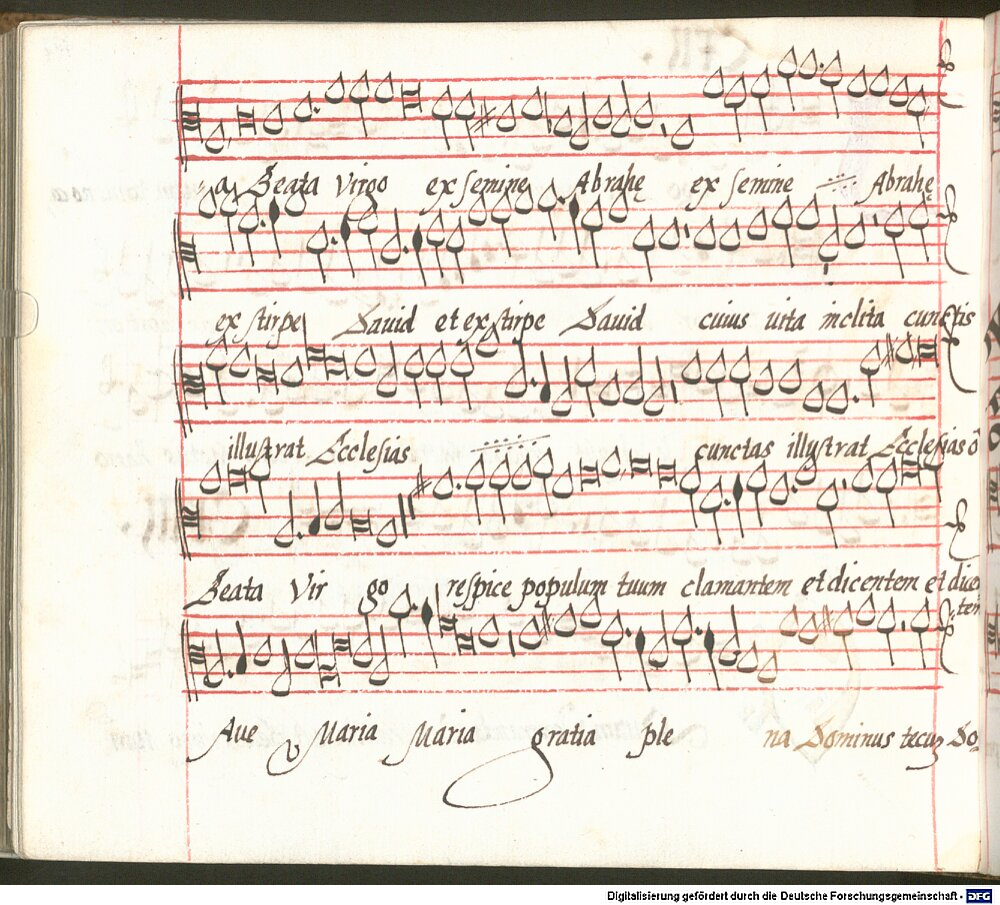 -a Beata Virgo ex semine Abrahę ex semine Abrahę
ex stirpe David et ex stirpe David cuius vita inclita cunctis
illustrat Ecclesias cunctas illustrat Ecclesias ô
Beata Virgo respice populum tuum clamantem et dicentem et dicē
tem
Ave Maria Maria gratia ple na Dominus tecum Do-
Digitalisierung gefördert durch die Deutsche Forschungsgemeinschaft - DFG